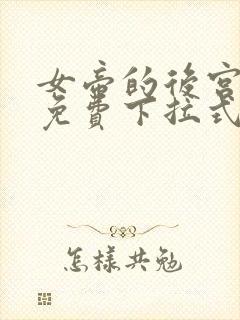 女帝的後宮
免費下拉式
怎樣共勉